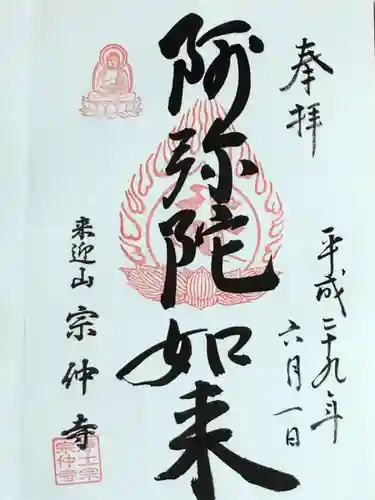 奉拝
平成二十九年
六月一日
阿弥陀如来
来迎山 宗仲寺
浄土宗
宗仲寺